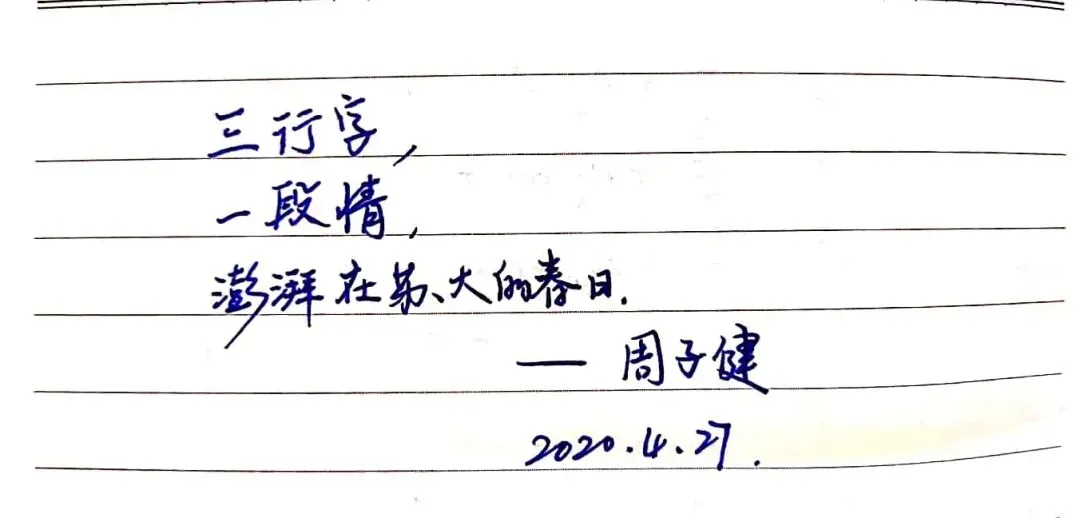 三行字，
一段情，
澎湃在苏大的春日.
—— 周子健
2020.4.27.